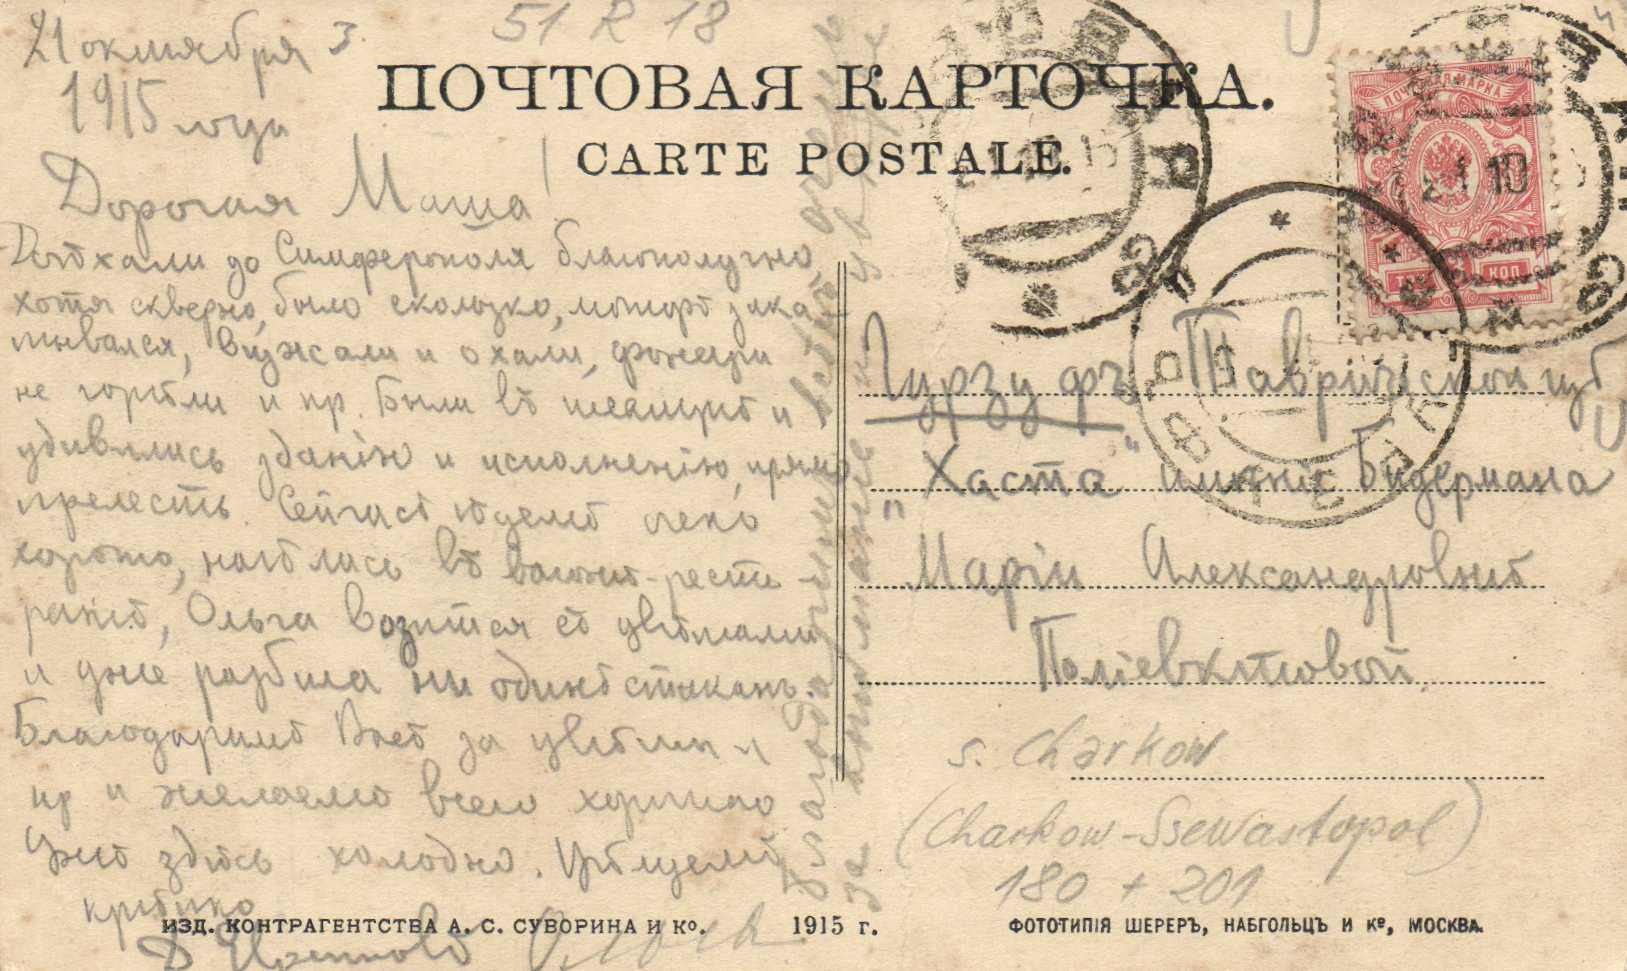 51 R 18
21 октября 3.
1915 года
ПОЧТОВАЯ КАРТОЧКА.
CARTE POSTALE.
Дорогая Маша!
Доѣхали до Симферополя благополучно,
хотя скверно, было склизко, моторъ зака
пывался, визжали и охали, фонари
не горѣли и пр. Были въ театрѣ и
удивились зданію и исполненію, прямо
прелесть. Сейчасъ ѣдемъ очень
хорошо, наѣлась въ вагонѣ-ресто
ранѣ, Ольга возится съ цвѣтами
и уже разбила ни одинъ стаканъ.
Благодаримъ Васъ за цвѣты и
пр и желаемъ всего хорошаго
Ужъ здѣсь холодно. Цѣлуемъ
крѣпко
Ольга
благодаримъ очень
за вниманіе и
Гурзуфъ Таврической губ
"Хаста" имѣніе Бидермана
Маріи Александровнѣ
Поліевктовой
s. Charkow
(Charkow-Ssewastopol)
180 + 201
ПОЧТОВАЯ МАРКА
ТРИ КОП
10
ИЗД. КОНТРАГЕНТСТВА А. С. СУВОРИНА И Ко. 1915 г.
ФОТОТИПІЯ ШЕРЕРЪ, НАБГОЛЬЦЪ И Ко, МОСКВА.